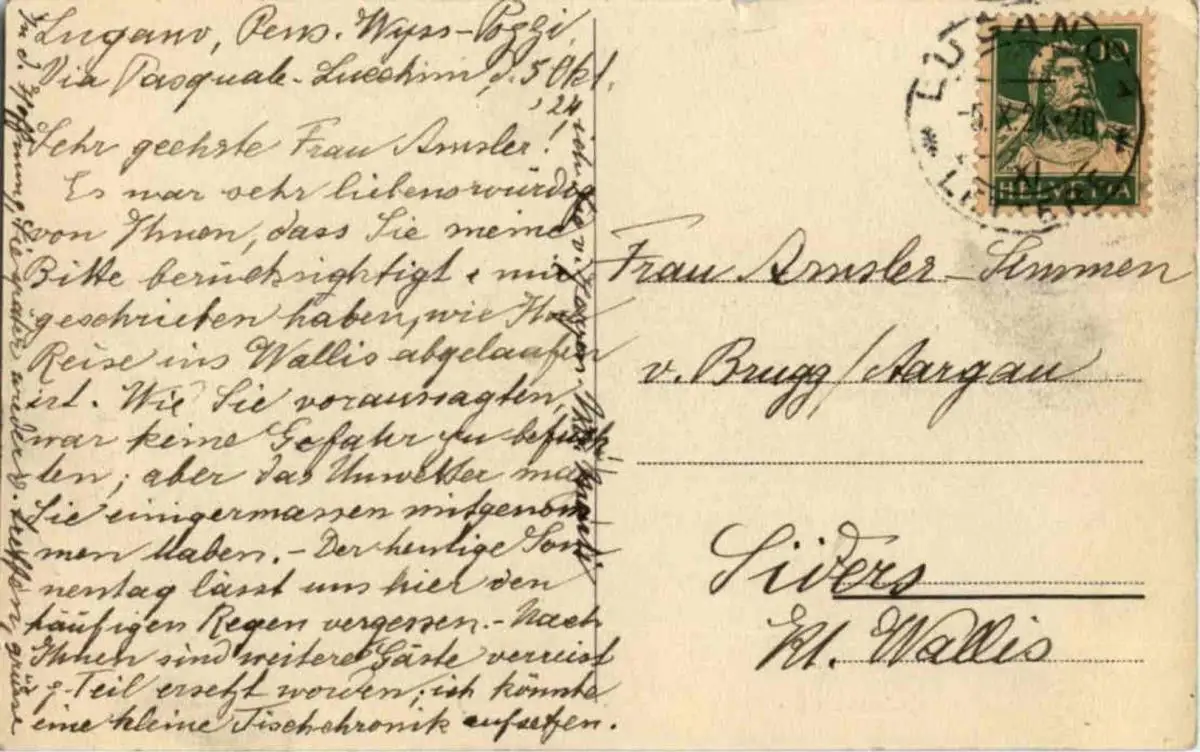 Lugano, Pens. Wyss-Pozzi,
Via Pasquale-Lucchini, d. 5 Okt.
'24
Sehr geehrte Frau Amsler!
Es war sehr liebenswürdig
von Ihnen, dass Sie meine
Bitte berücksichtigt & mir
geschrieben haben, wie Ihre
Reise ins Wallis abgelaufen
ist. Wie Sie voraussagten,
war keine Gefahr zu befürch-
ten; aber das Unwetter mag
Sie einigermassen mitgenom-
men haben. - Der heutige Son-
nentag lässt uns hier den
häufigen Regen vergessen. - Nach
Ihnen sind weitere Gäste verreist
z. Teil ersetzt worden; ich könnte
eine kleine Tischchronik aufsetzen.
In d. Hoffnung, Sie wieder z. treffen, grüsse
ich Sie v. Herzen
Frau Amsler-Simmen
v. Brugg/Aargau
Siders
Kt. Wallis
LUGANO 1
5. X. 24 - 20
LETTERE
HELVETIA